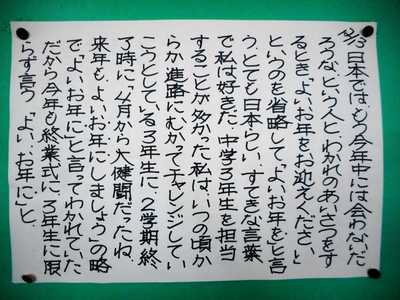 12/13 日本では、もう今年中には会わないだ
ろうな、という人と、わかれのあいさつをす
るとき「よいお年をお迎えください」
というのを省略して「よいお年を」と言
う。とても日本らしい、すてきな言葉
で私は好きだ。中学3年生を担当
することが多かった私は、いつの頃か
らか、進路にむかってチャレンジしてい
こうとしている3年生に、2学期終
了時に「4月から大健闘だったね。
来年も、よいお年にしましょう」の略
で「よいお年に」と言ってわかれていた。
だから今年も終業式に、3年生に限
らず言う。「よい、お年に」と。